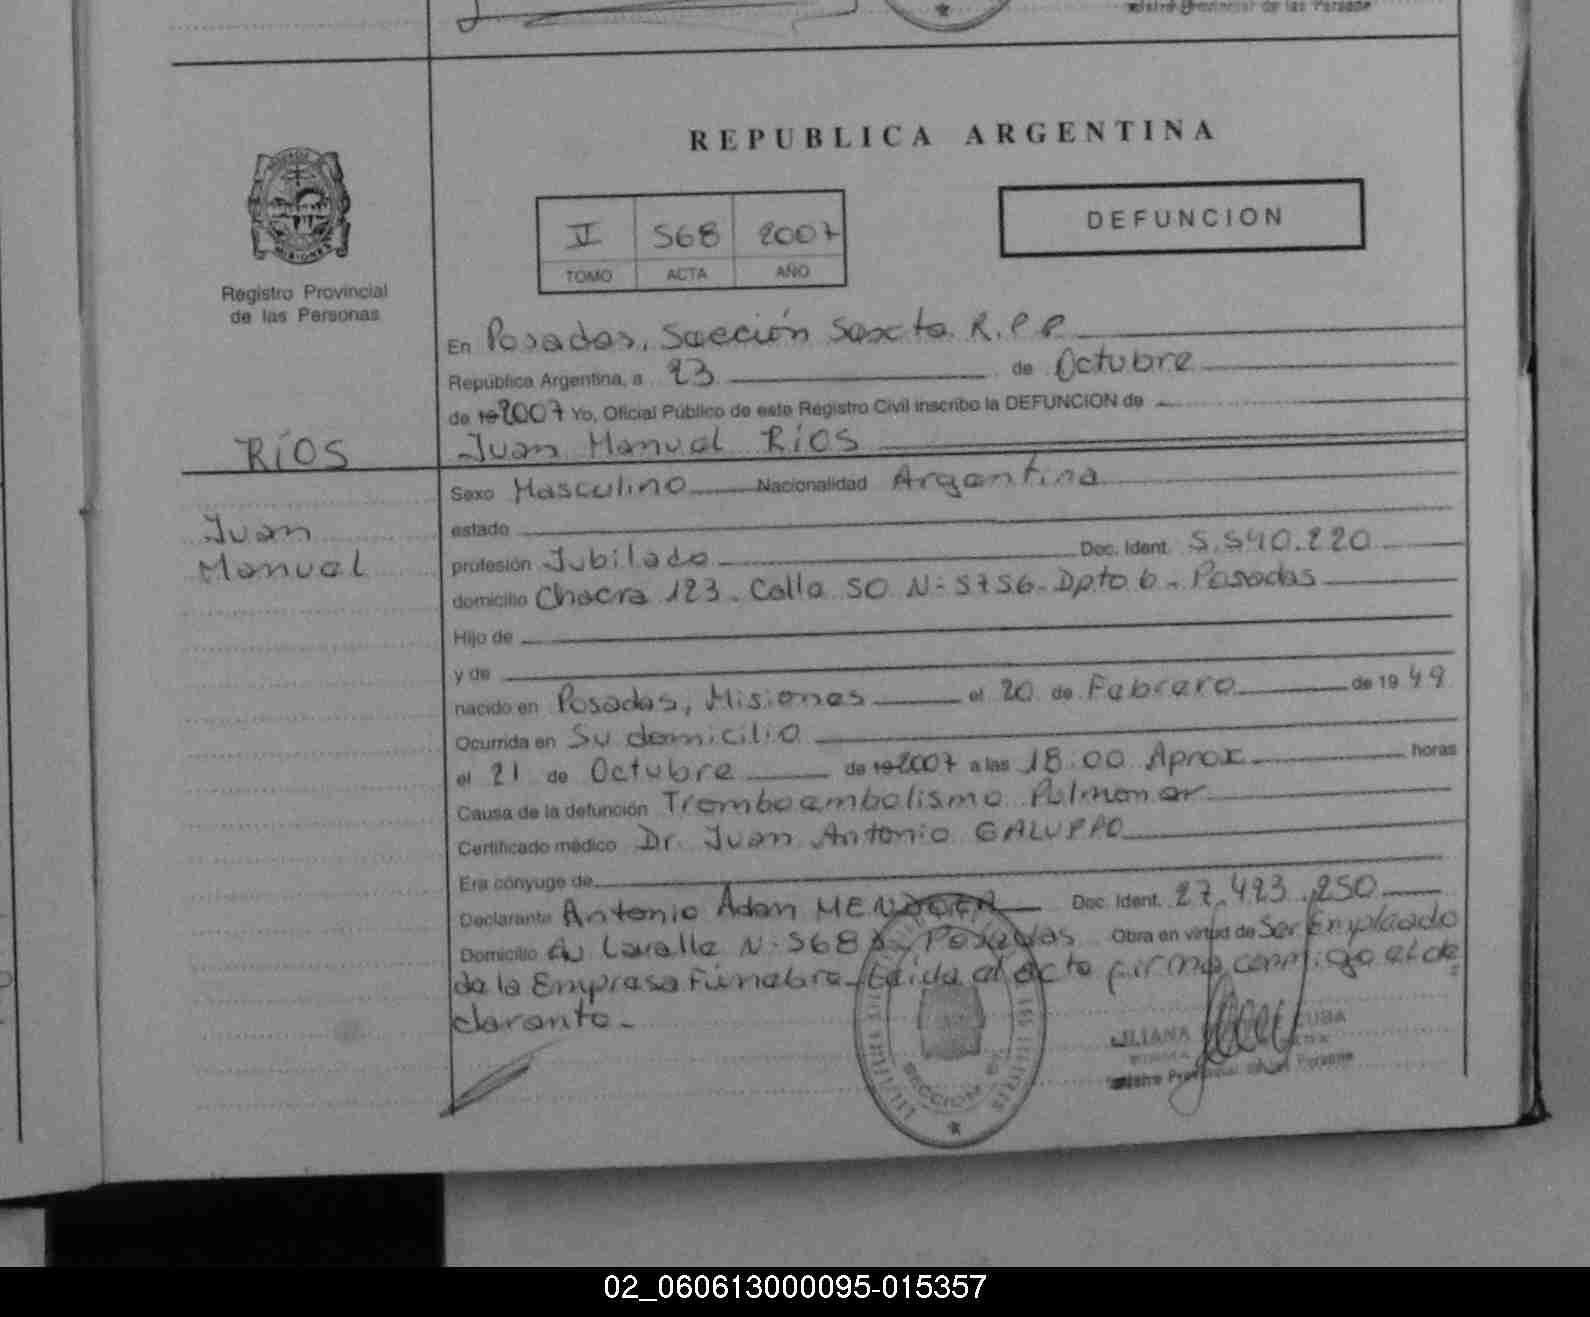 Registro Provincial de las Persona
REPUBLICA ARGENTINA
DEFUNCION
II 568 2007
TOMO ACTA AÑO
MISIONES
Registro Provincial
de las Personas
En Posadas, Sección Sexta R.P.P
República Argentina, a 23 de Octubre
de 19 2007 Yo, Oficial Público de este Registro Civil inscribo la DEFUNCION de
RÍOS
Juan Manuel RÍOS
Sexo Masculino Nacionalidad Argentina
Juan
Manuel
estado
profesión Jubilado Doc. Ident. 5.540.220
domicilio Chacra 123. Calle 50 N: 5756. Dpto 6. Posadas
Hijo de
y de
nacido en Posadas, Misiones el 20 de Febrero de 19 49
Ocurrida en Su domicilio
el 21 de Octubre de 19 2007 a las 18:00 Aprox horas
Causa de la defunción Tromboembolismo Pulmonar
Certificado médico Dr. Juan Antonio GALUPPO
Era cónyuge de
Declarante Antonio Adan Doc. Ident. 27.423.250
Domicilio Av Lavalle N: Posadas Obra en virtud de Ser Empleado
de la Empresa Fúnebre. Leída el acto firma conmigo el de
clarante.
SECCION 6
LILIANA CUBA
Registro Provincial de las Persona
02_060613000095-015357